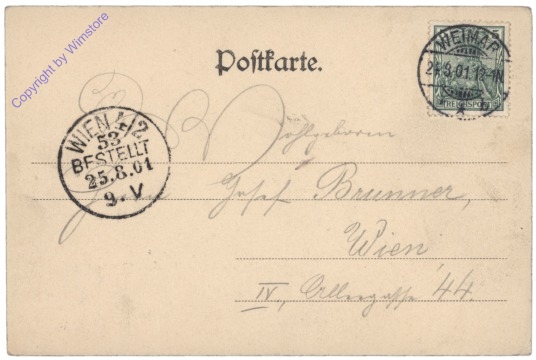 Copyright by Wimstore
Postkarte.
WEIMAR
24.8.01.12-1N
REICHSPOST
WIEN 4/2
53
BESTELLT
25.8.01
9.V
Wohlgeboren
Josef Brunner,
Wien
IV, 44.